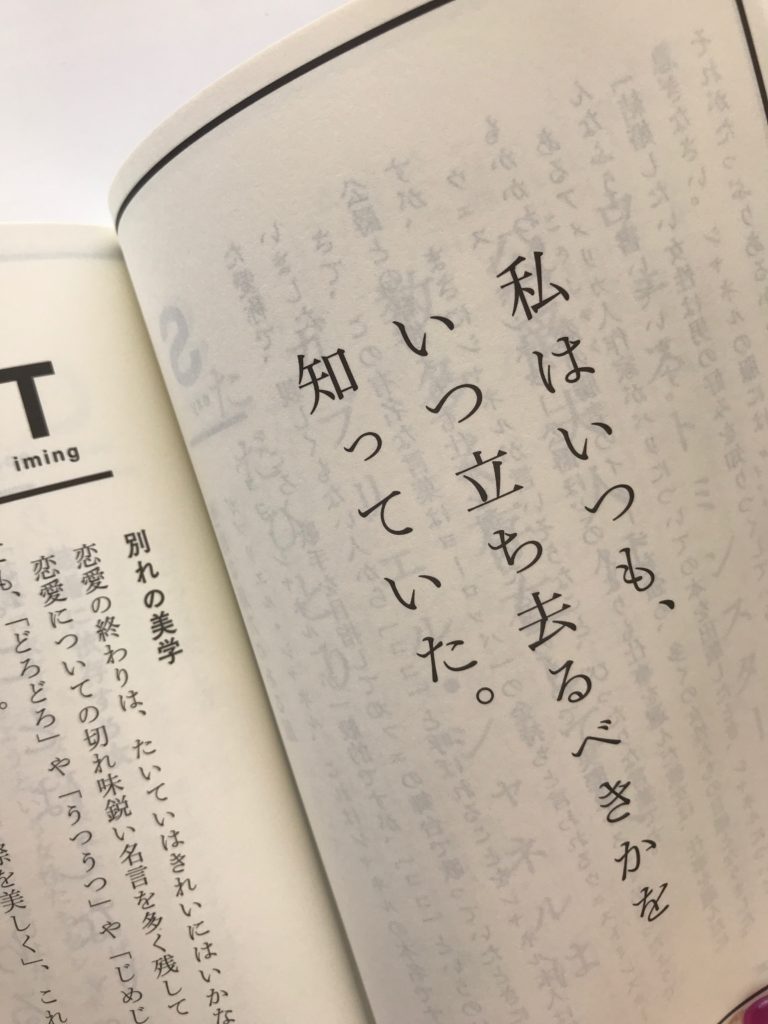 私はいつも、
いつ立ち去るべきかを
知っていた。
T
iming
別れの美学
恋愛の終わりは、たいていはきれいにはいかな
恋愛についての切れ味鋭い名言を多く残して
も、「どろどろ」や「うつうつ」や「じめじ
を美しく」、これ